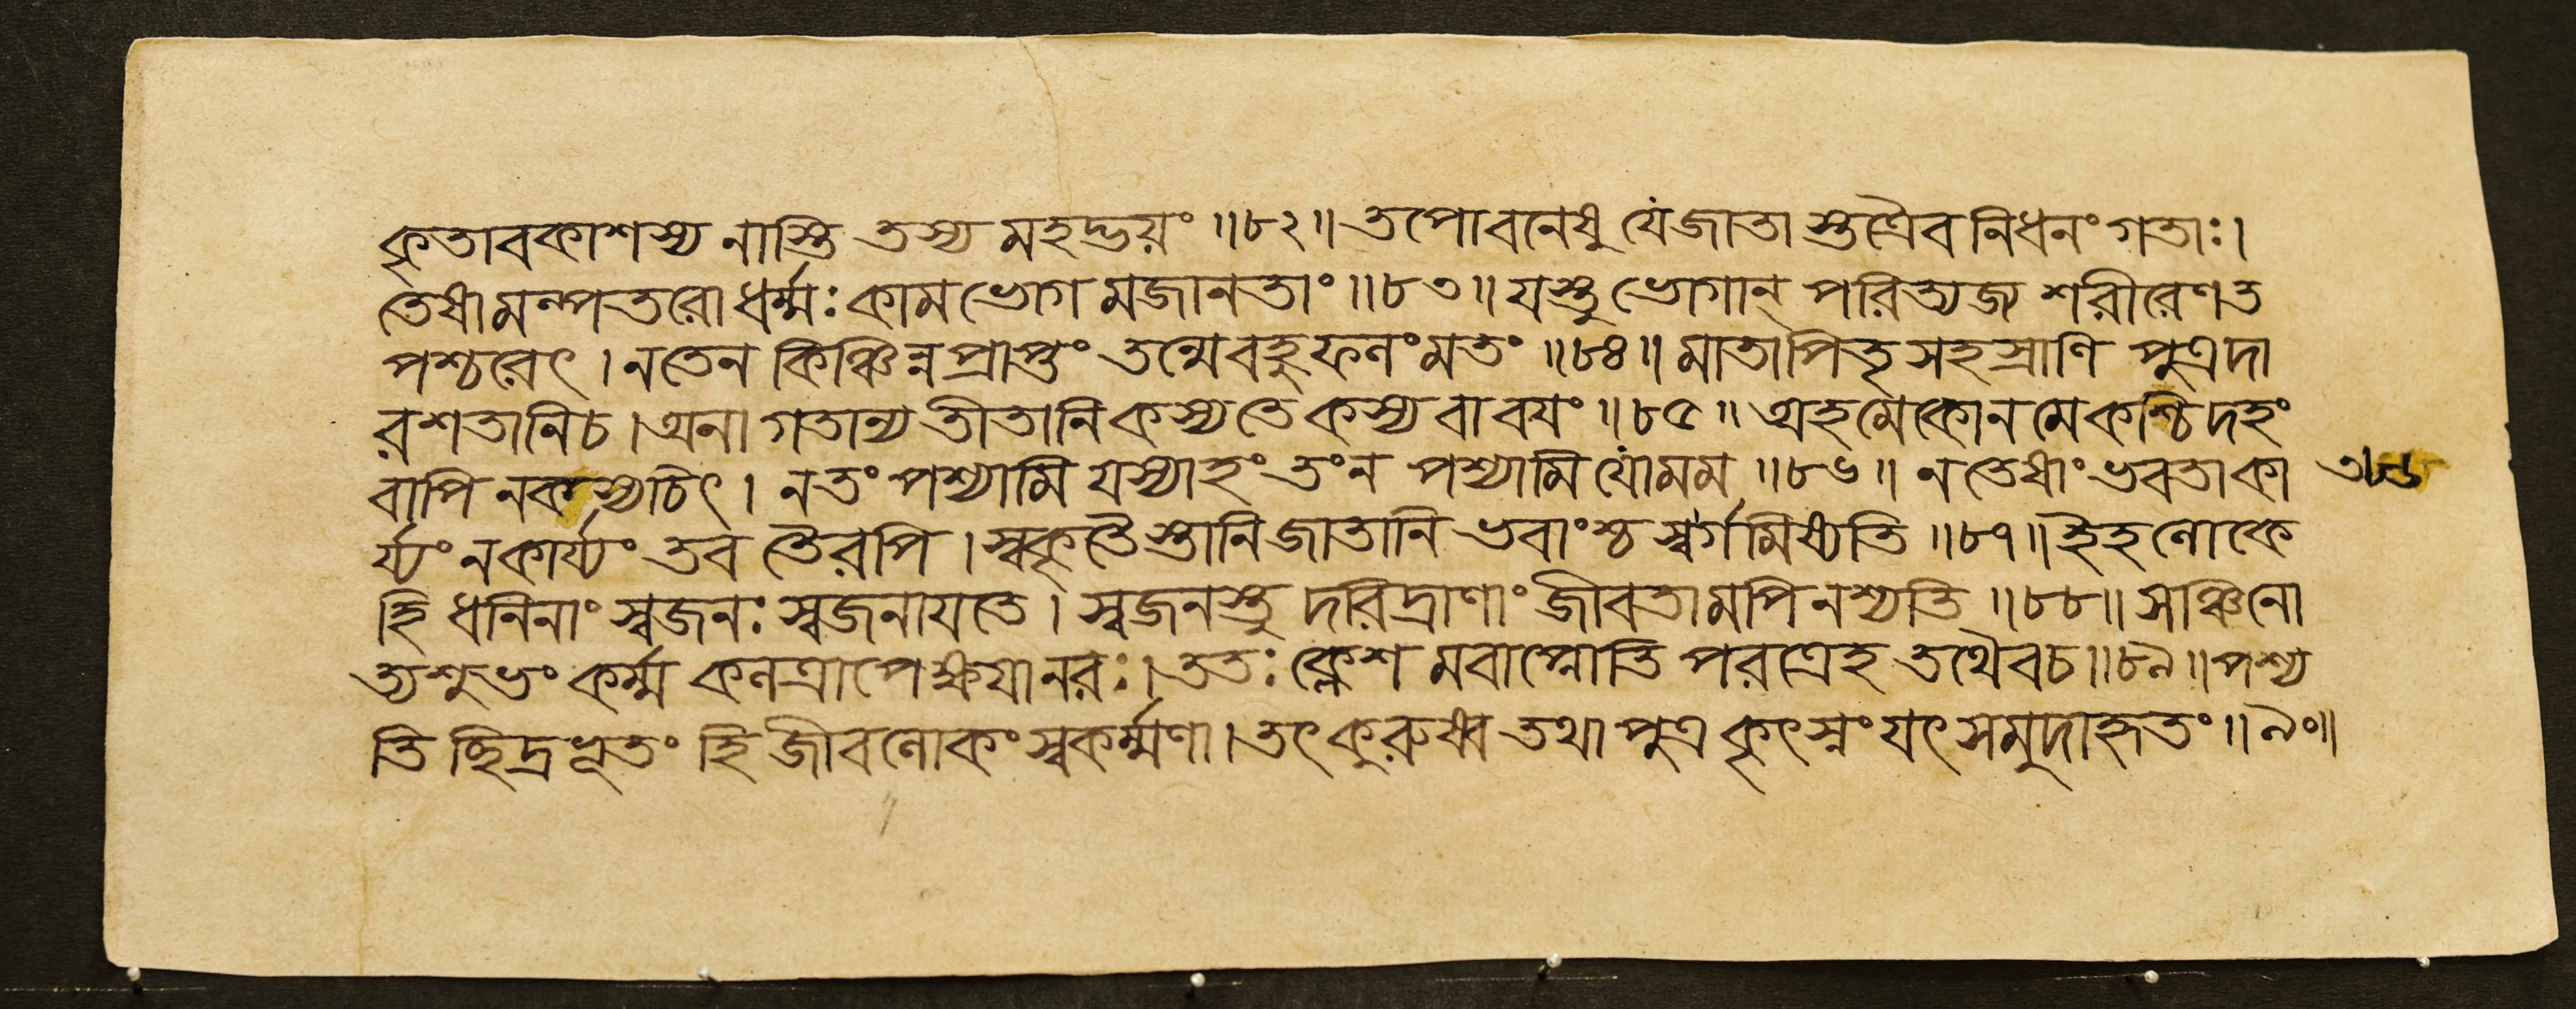 কৃতাবকাশস্য নাস্তি তস্য মহদ্ভয়ং ॥৮২॥ তপোবনেষু যেজাতা স্তত্রৈব নিধনং গতাঃ।
তেষামল্পতরো ধর্ম্মঃ কামভোগ মজানতাং ॥৮৩॥ যস্তু ভোগান্ পরিত্যজ্য শরীরেণত
পশ্চরেৎ । নতেন কিঞ্চিন্নপ্রাপ্তং তন্মেবহুফলংমতং ॥৮৪॥ মাতাপিতৃসহস্রাণি পুত্রদা
রশতানিচ।অনাগতান্যতীতানি কস্যতে কস্যবাবয়ং ॥৮৫॥ অহমেকোনমেকশ্চিদহং
বাপি নকস্যচিৎ। নতং পশ্যামি যস্যাহং তংন পশ্যামি যোমম ॥৮৬॥ ন তেষাং ভবতাকা
র্য্যং নকার্য্যং তব তৈরপি।স্বকৃতৈস্তানিজাতানি ভবাংশ্চ স্বর্গমিষ্যতি ॥৮৭॥ ইহলোকে
হি ধনিনাং স্বজনঃ স্বজনায়তে। স্বজনস্তু দরিদ্রাণাং জীবতামপিনশ্যতি ॥৮৮॥ সঞ্চিনো
ত্যশুভং কর্ম্ম কলত্রাপেক্ষয়ানরঃ। ততঃ ক্লেশ মবাপ্নোতি পরত্রেহ তথৈবচ॥৮৯॥ পশ্য
তি ছিদ্রভূতং হি জীবলোকং স্বকর্ম্মণা।তৎকুরুষ্ব তথা পুত্র কৃৎস্নং যৎসমুদাহৃতং ॥৯০॥